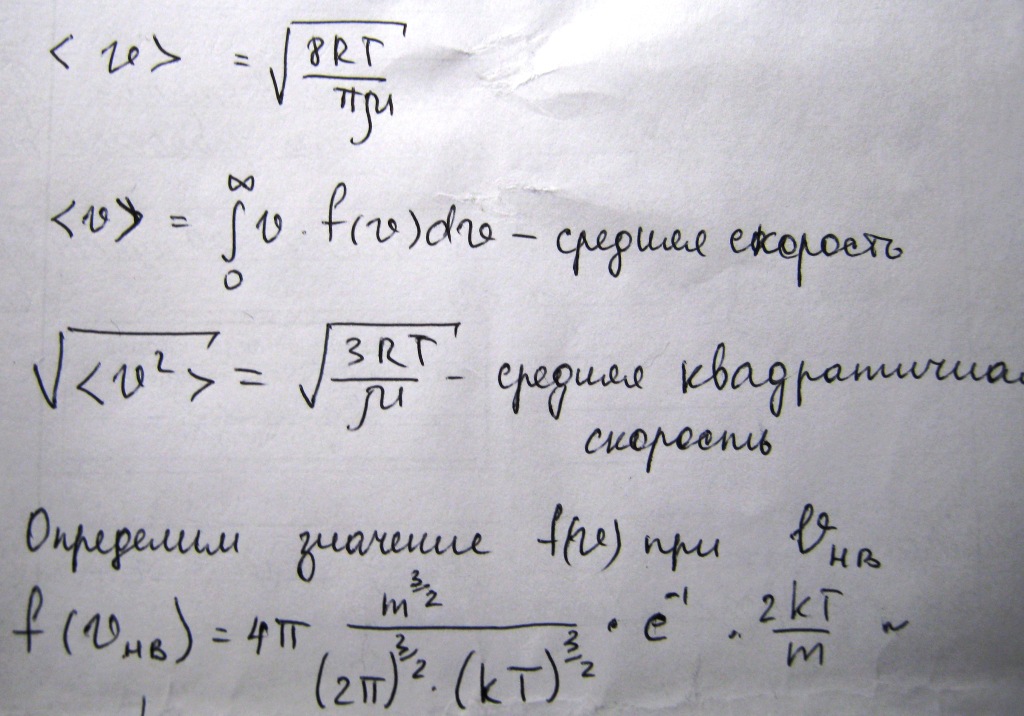 <v> = √(8RT/πμ)
<v> = ∫₀^∞ v · f(v)dv – средняя скорость
√<v²> = √(3RT/μ) – средняя квадратичная
скорость
Определим значение f(v) при v_нв
f(v_нв) = 4π m^(3/2)/((2π)^(3/2) · (kT)^(3/2)) · e⁻¹ · 2kT/m ~